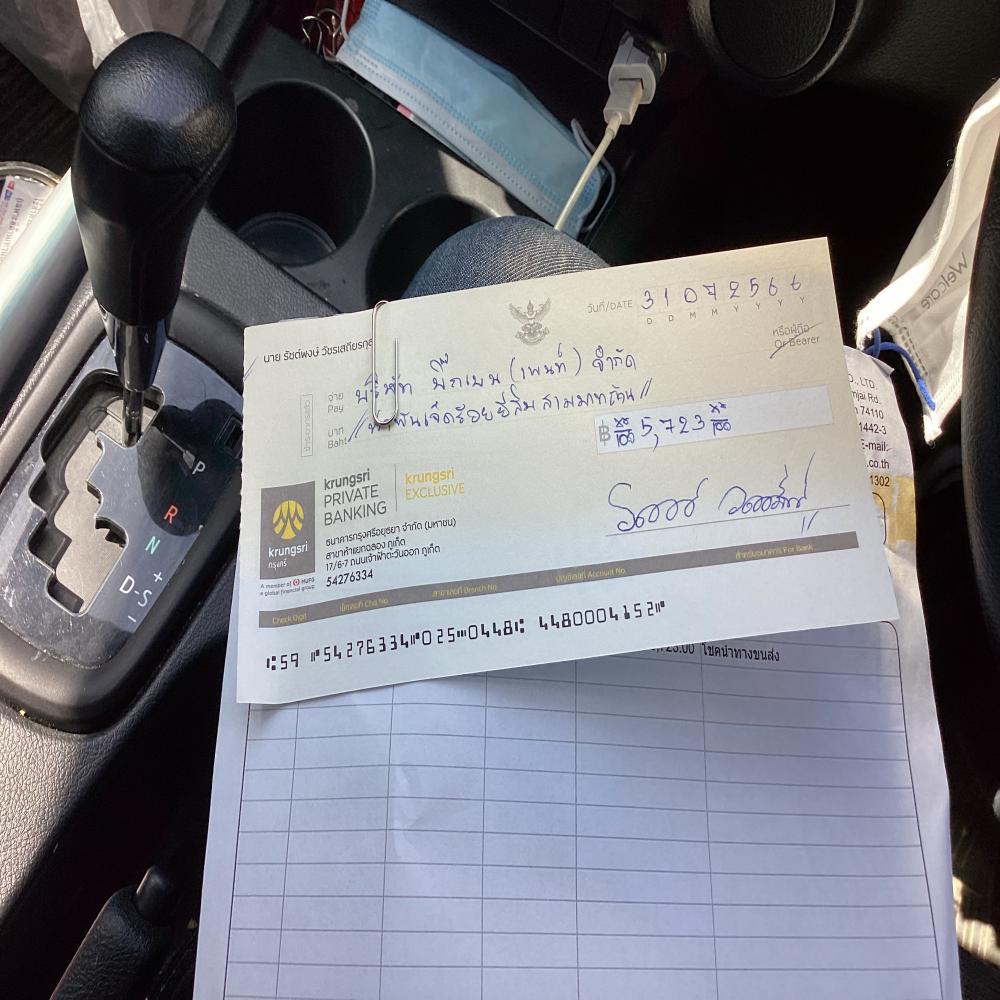 วันที่/DATE 31072566
D D M M Y Y Y Y
นาย รัชต์พงษ์ วัชรเสถียรกุ
หรือผู้ถือ
Or Bearer
จ่าย
Pay
บริษัท บีกเบน (เพนท์) จำกัด
บาท
Baht
//ห้าพันเจ็ดร้อยยี่สิบสามบาทถ้วน//
฿ 5,723
krungsri
PRIVATE
BANKING
krungsri
EXCLUSIVE
krungsri
กรุงศรี
A member of MUFG
a global financial group
ธนาคารกรุงศรีอยุธยา จำกัด (มหาชน)
สาขาห้าแยกฉลอง ภูเก็ต
17/6-7 ถนนเจ้าฟ้าตะวันออก ภูเก็ต
54276334
Check Digit
เช็คเลขที่ Chq No.
สาขาเลขที่ Branch No.
บัญชีเลขที่ Account No.
สำหรับธนาคาร For Bank
⑆59 ⑈54276334⑈025⑉0448⑆ 4480004152⑈
O., LTD.
njai Rd.
74110
1442-3
E-mail:
.co.th
1302
23.00 โชคนำทางขนส่ง
P
R
N
D-S
+
−
Welcare